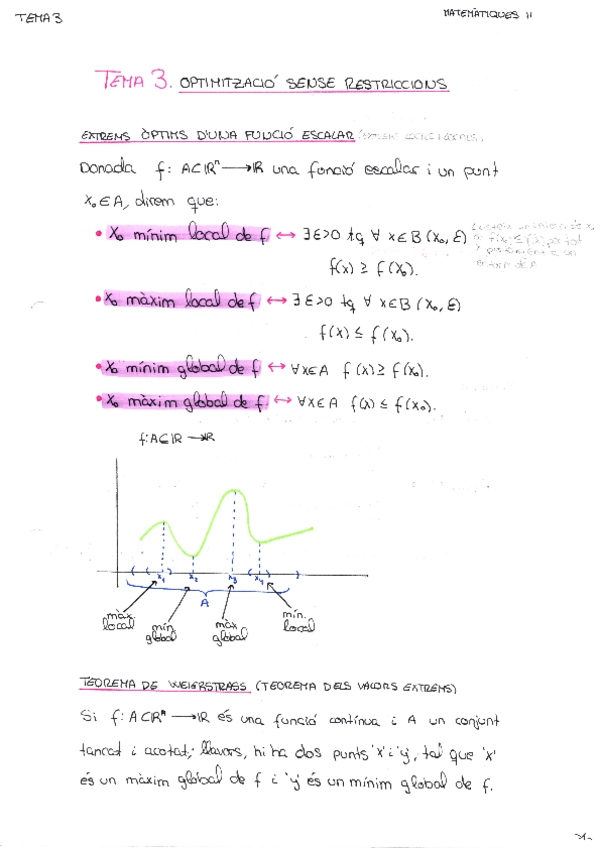 TEMA 3
MATEMÀTIQUES II
TEMA 3. OPTIMITZACIÓ SENSE RESTRICCIONS
EXTREMS ÒPTIMS D'UNA FUNCIÓ ESCALAR
Donada f: A⊂ℝⁿ → ℝ una funció escalar i un punt
x₀ ∈ A, direm que:
• x₀ mínim local de f ↔ ∃ε>0 tq ∀ x∈B(x₀, ε)
f(x) ≥ f(x₀).
• x₀ màxim local de f ↔ ∃ε>0 tq ∀ x∈B(x₀, ε)
f(x) ≤ f(x₀).
• x₀ mínim global de f ↔ ∀x∈A f(x) ≥ f(x₀).
• x₀ màxim global de f. ↔ ∀x∈A f(x) ≤ f(x₀).
f: A⊆ℝ → ℝ
x₁ x₂ x₃ x₄
A
màx. local
mín. global
màx. global
mín. local
TEOREMA DE WEIERSTRASS (TEOREMA DELS VALORS EXTREMS)
Si f: A⊂ℝⁿ → ℝ és una funció contínua i A un conjunt
tancat i acotat; llavors, hi ha dos punts 'x' i 'y', tal que 'x'
és un màxim global de f i 'y' és un mínim global de f.